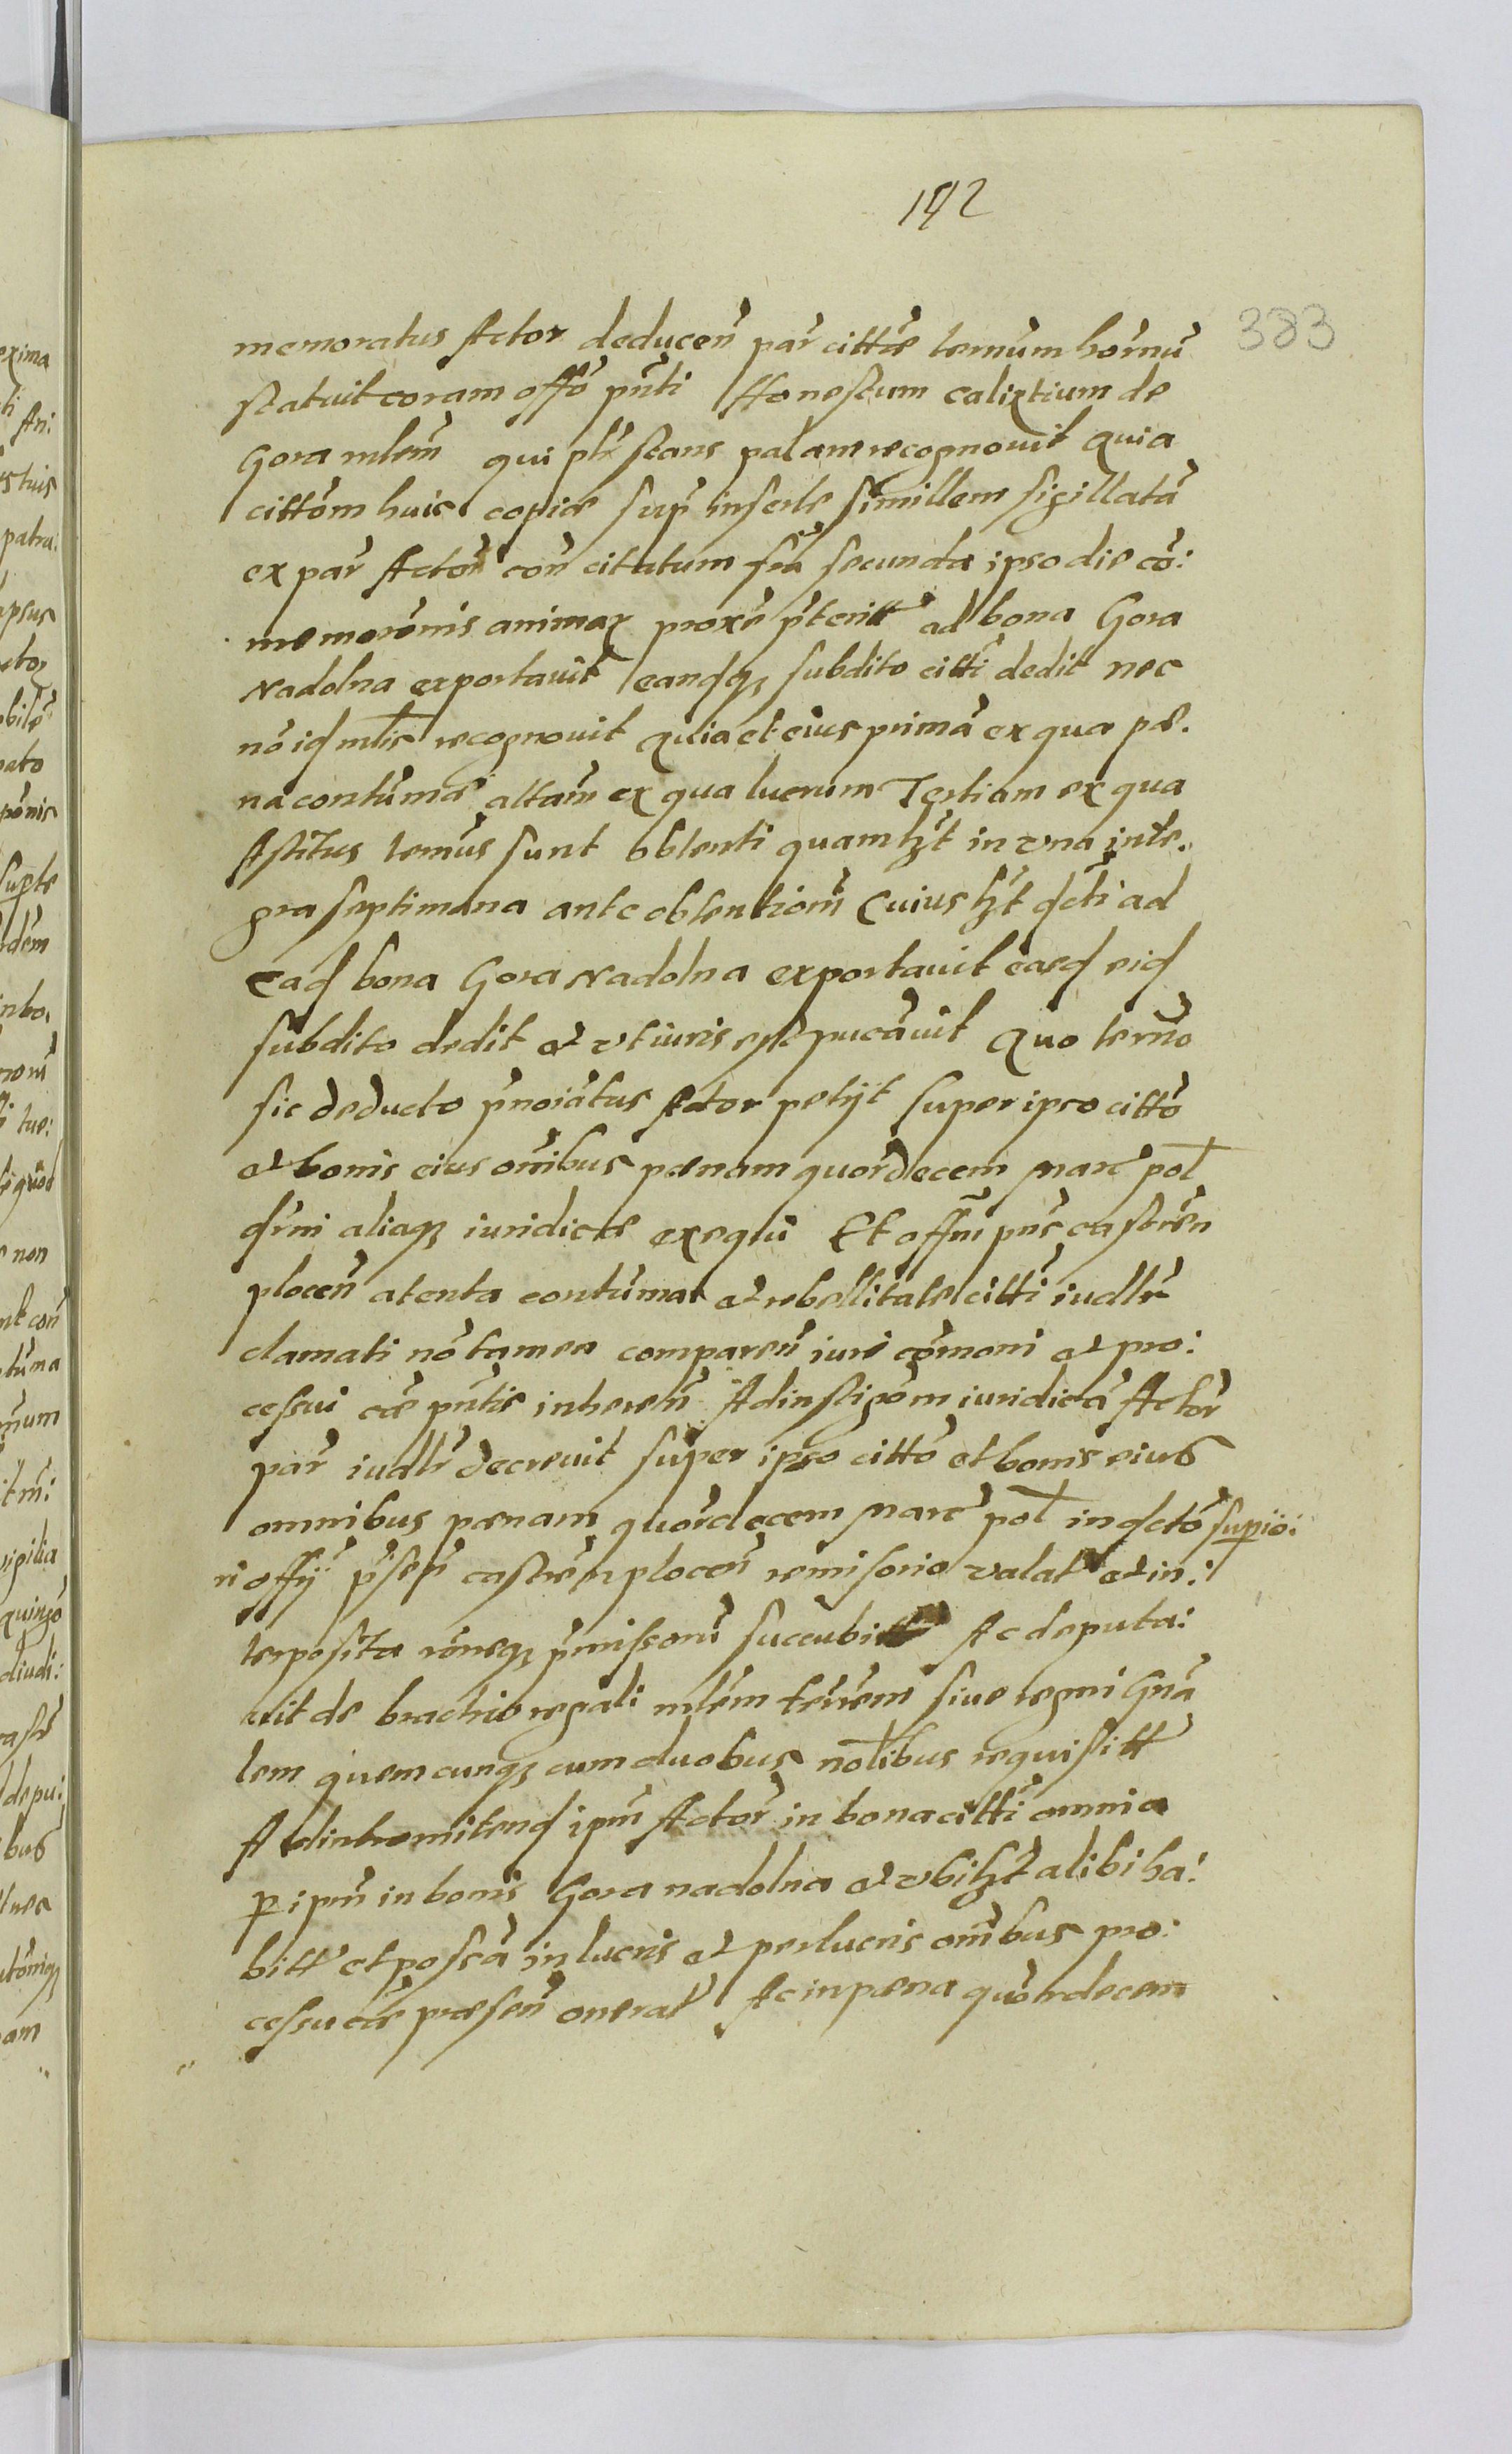 192
383
memoratus Actor deducen̄ par̄ cittt̄e termi̇num hōrnū
statuit coram offō pn̄ti Honestum Calixtium de
Gora mlēm qui pl̄r stans palam recognouit Quia
cittōm huic copiæ sup̄ insertæ simillem sigillatā
ex par̄ Actor̄ con̄ citatum fr̄ia secunda ipso die cō:
memorōnis animar̄ proxe p̄terit̄ ad bona Gora
Nadolna exportauit eandq̨ subdito citt̄i dedit nec
nō id ml̄is recognouit Quia et eius primā ex qua pæ.
na contūma altam̄ ex qua lucrum Tertiam ex qua
Astitus termīus sunt obtenti quamlz̄t in vna inte.
gra septimana ante obtentionm̄ Cuiuslz̄t dcti ad
Ead bona Gora Nadolna exportauit easd eid
subdito dedit et vt iuris est pucāuit Quo termīo
sic deducto p̄noiātus Actor petijt super ipso cittō
et bonis eius om̄ibus pænam quor̄decem Marc pol
dr̄ni aliaq̨ iuridice exequi Et offm̄ pn̄s castren̄
plocen̄ atenta contūma et rebellitate citti iudl̄r
clamati nō tamen comparen̄ iuri cōmoni et pro:
cessui cæ pn̄tis inheren̄ Ad instigōm iuridicā Actor̄
par̄ iudl̄r decreuit super ipso cittō et bonis eius
omnibus pænam quor̄decem Marc pol in dctō supio:
ri offij p̄sen̄ castren̄ plocen̄ remisorio valat̄ et in:
terposita rōneq̨ p̄missorū succubit̄ Ac deputa:
uit de brachio regali mlēm terrem̄ siue regni Gn̄a
lem quemcunq̨ cum duobus nolibus requisitt̄
Ad intromitend ipm̄ Actor̄ in bona citti omnia
p ipm̄ in bonis Gora nadolna et vbilz̄t alibi ha:
bitt̄ et possā in lucris et perlucris om̄ibus pro:
cessu cæ præsen̄ onerat̄ Ac in pæna quor̄decem